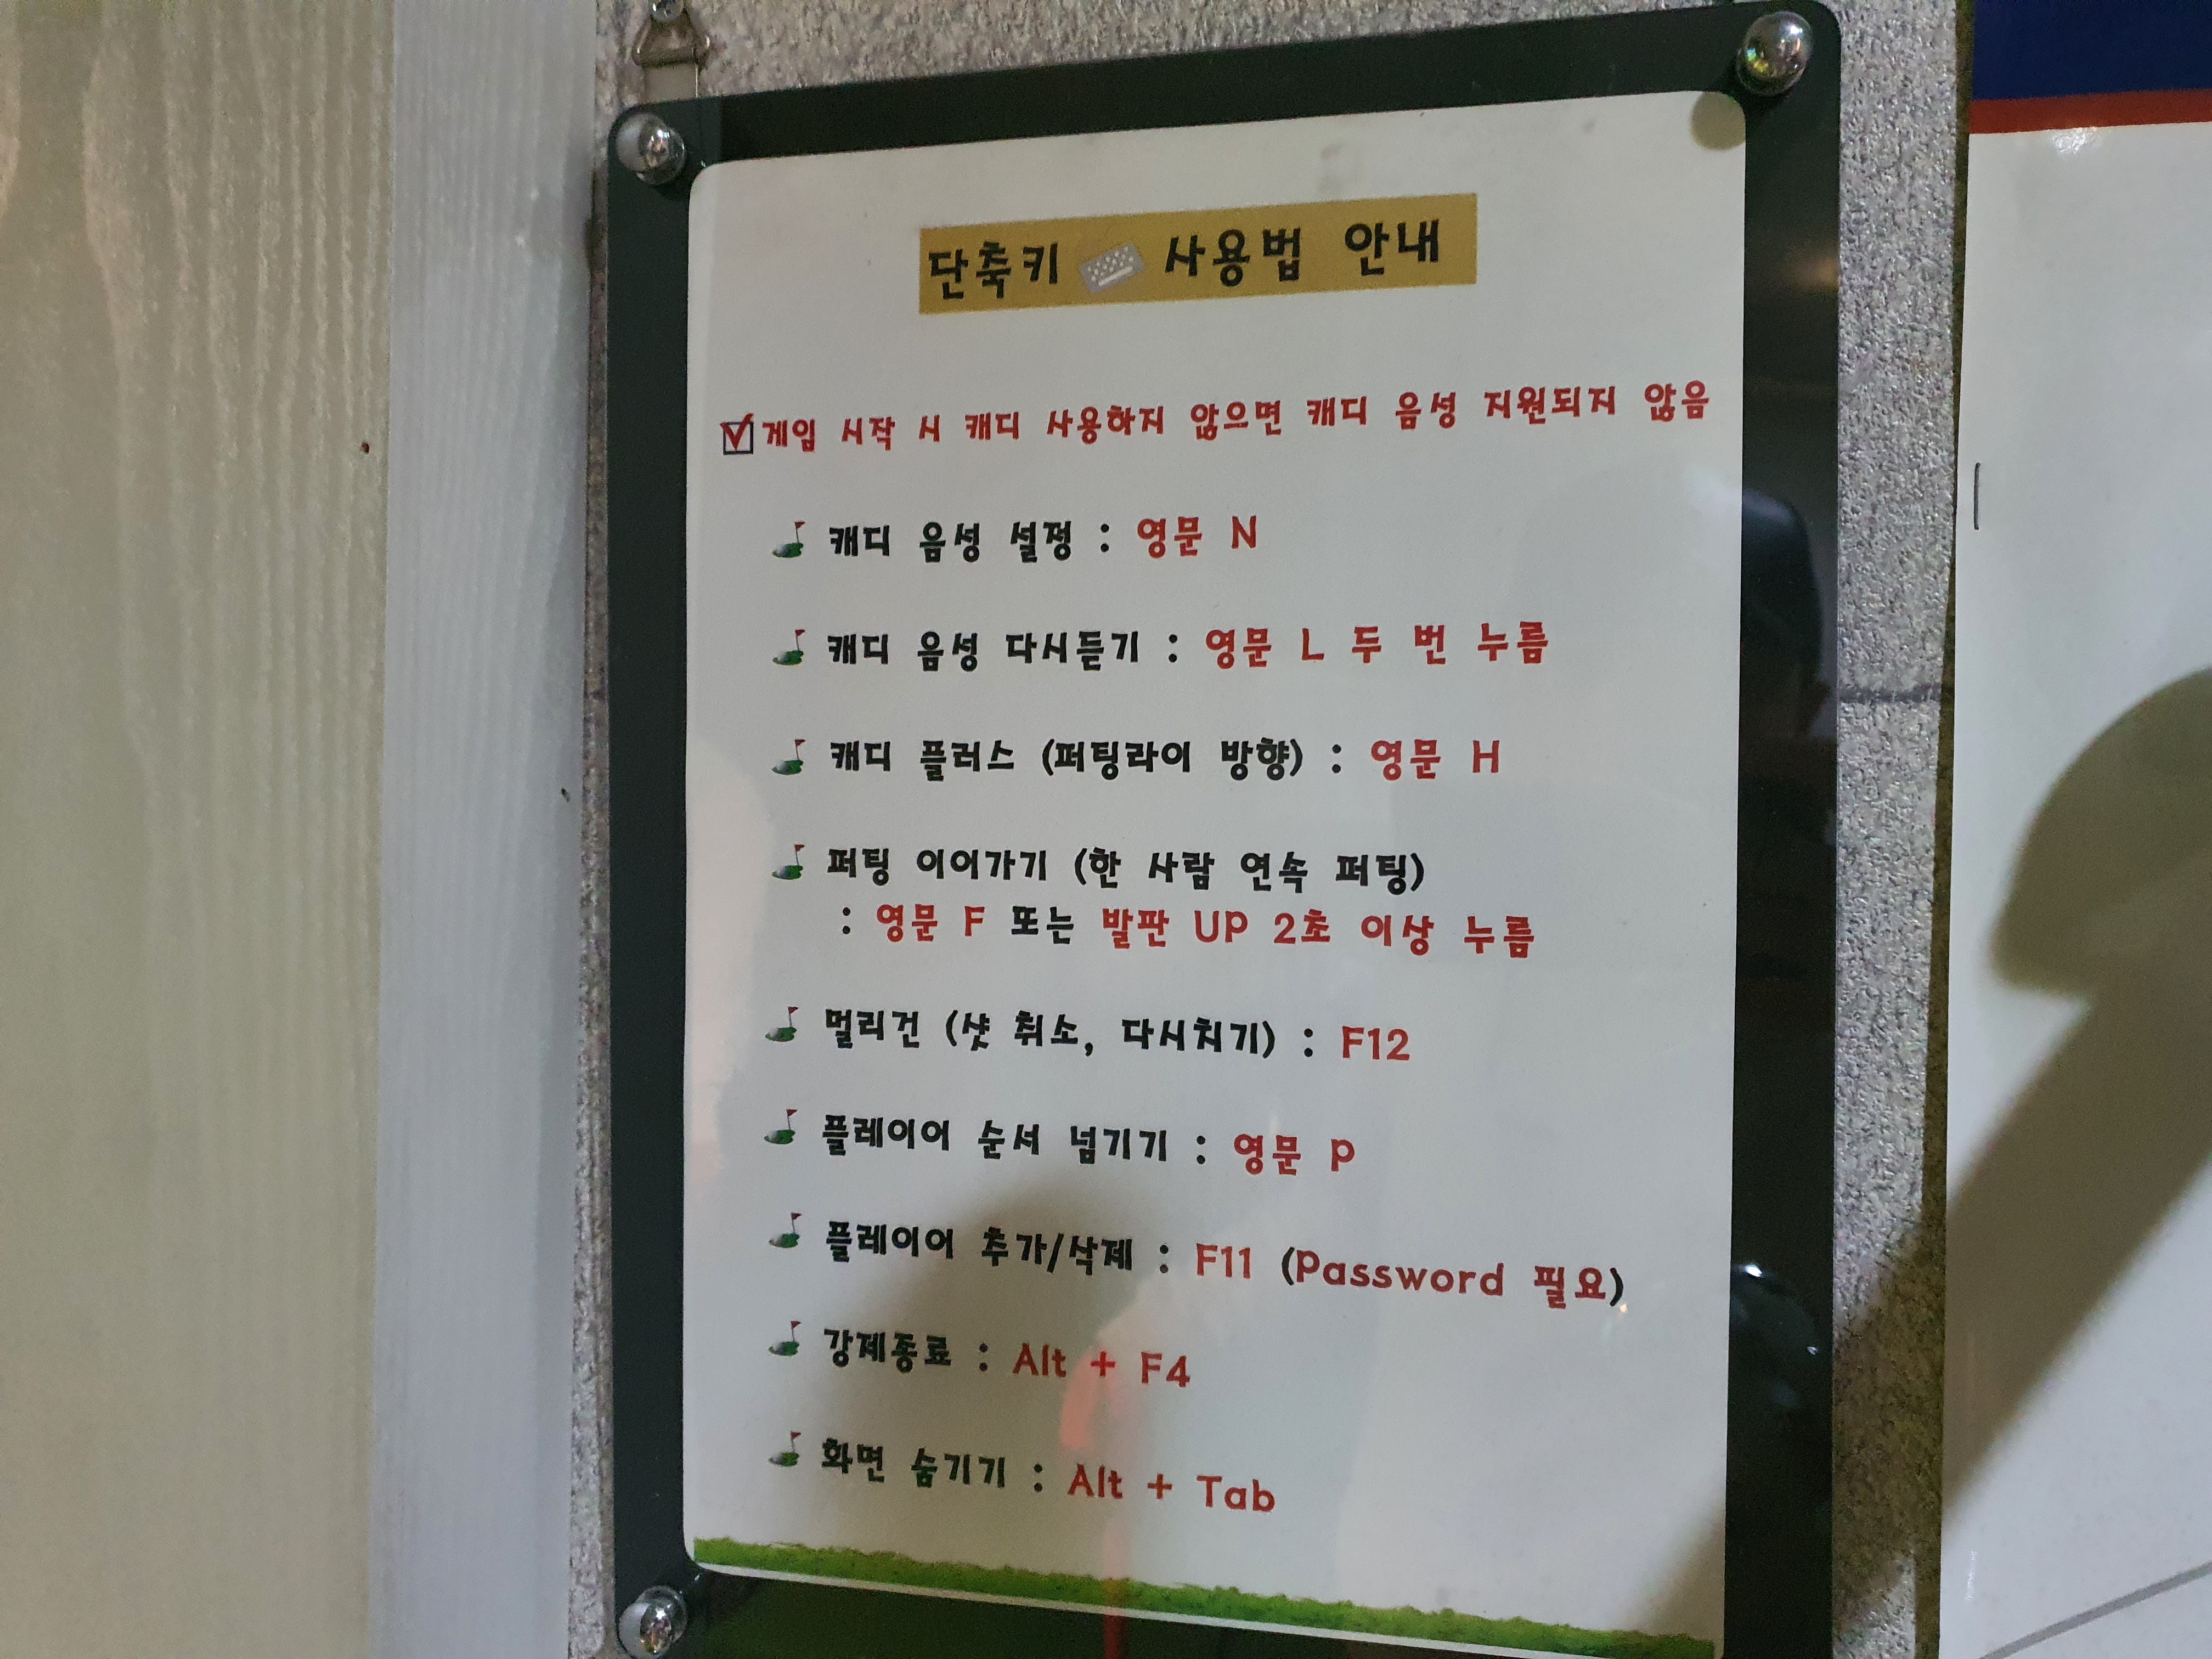 단축키 사용법 안내
게임 시작 시 캐디 사용하지 않으면 캐디 음성 지원되지 않음
캐디 음성 설정 : 영문 N
캐디 음성 다시듣기 : 영문 L 두 번 누름
캐디 플러스 (퍼팅라이 방향) : 영문 H
퍼팅 이어가기 (한 사람 연속 퍼팅)
: 영문 F 또는 발판 UP 2초 이상 누름
멀리건 (샷 취소, 다시치기) : F12
플레이어 순서 넘기기 : 영문 P
플레이어 추가/삭제 : F11 (Password 필요)
강제종료 : Alt + F4
화면 숨기기 : Alt + Tab